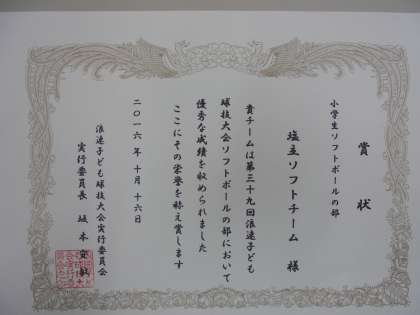 賞状
小学生ソフトボールの部
塩立ソフトチーム 様
貴チームは第三十九回浪速子ども
球技大会ソフトボールの部において
優秀な成績を収められました
ここにその栄誉を称え賞します
二〇一六年 十月 十六日
浪速子ども球技大会実行委員会
実行委員長 坂本